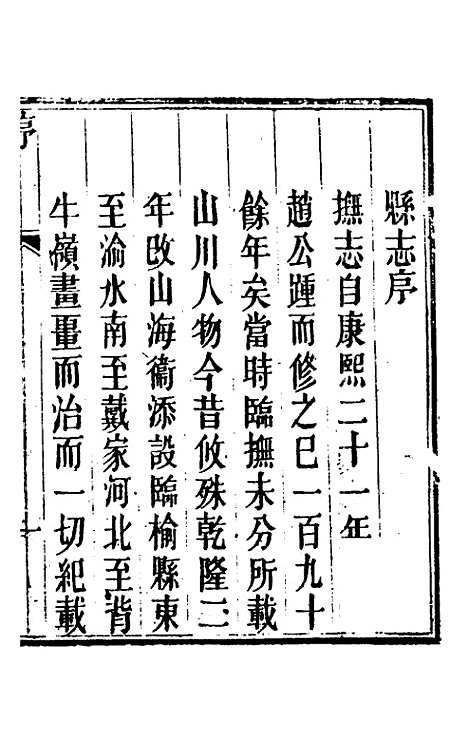 縣志序
撫志自康熙二十一年
趙公踵而修之已一百九十
餘年矣當時臨撫未分所載
山川人物今昔攸殊乾隆二
年改山海衞添設臨榆縣東
至渝水南至戴家河北至背
牛嶺畫畺而治而一切紀載
序
一